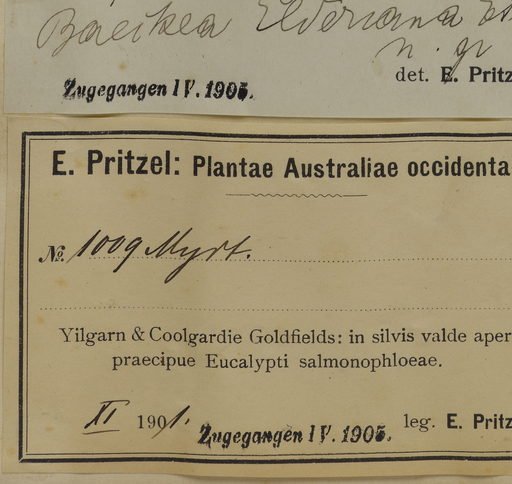 Baeckea Elderiana
n. gr
det. E. Pritz
Zugegangen IV. 1905.
E. Pritzel: Plantae Australiae occidenta
№ 1009 Myrt.
Yilgarn & Coolgardie Goldfields: in silvis valde aper
praecipue Eucalypti salmonophloeae.
XI 1901. leg. E. Pritz
Zugegangen IV. 1905.